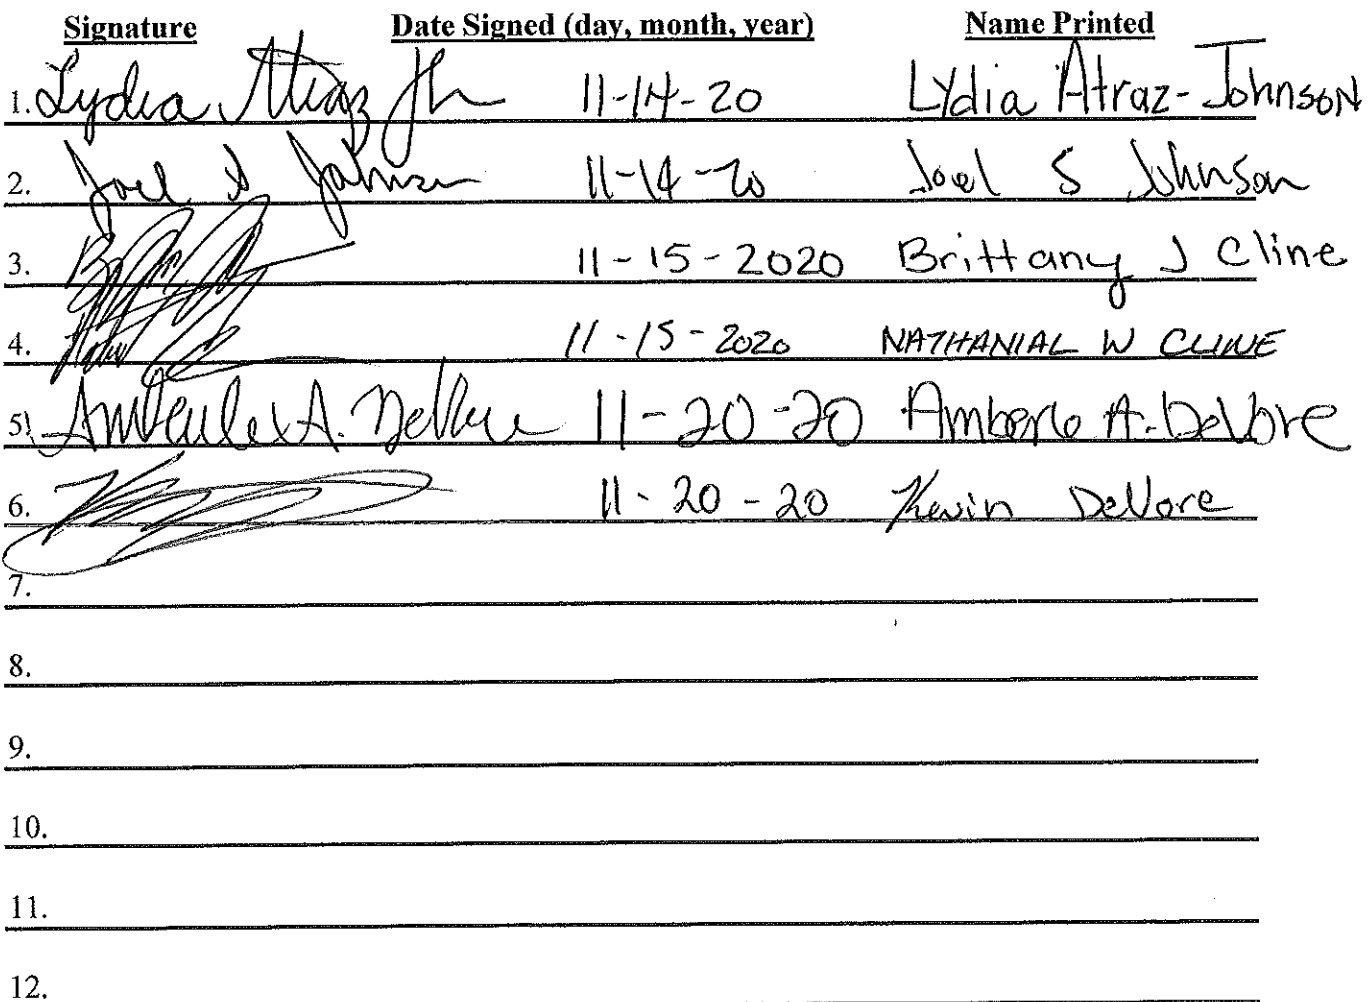 Signature Date Signed (day, month, year) Name Printed
1. Lydia Atraz Jh 11-14-20 Lydia Atraz-Johnson
2. Joel S Johnson 11-14-20 Joel S Johnson
3. 11-15-2020 Brittany J Cline
4. 11-15-2020 NATHANIAL W CLINE
5. A. DeVore 11-20-20 A. DeVore
6. 11-20-20 Kevin DeVore
7.
8.
9.
10.
11.
12.